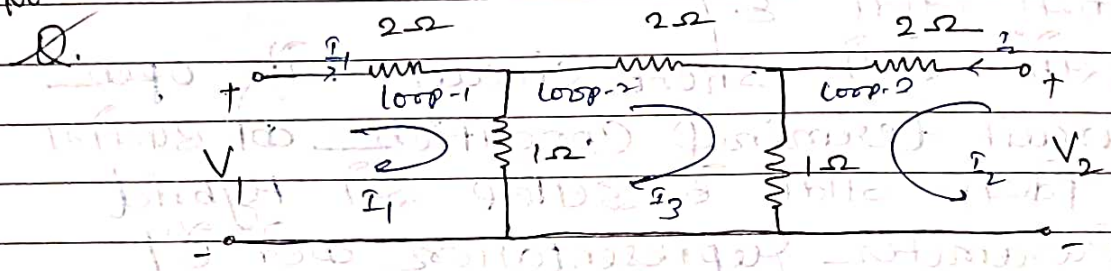 Q.
2Ω 2Ω 2Ω
I1 I2
+ loop-1 loop-2 loop-3 +
V1 1Ω 1Ω V2
I1 I3 I2
- -